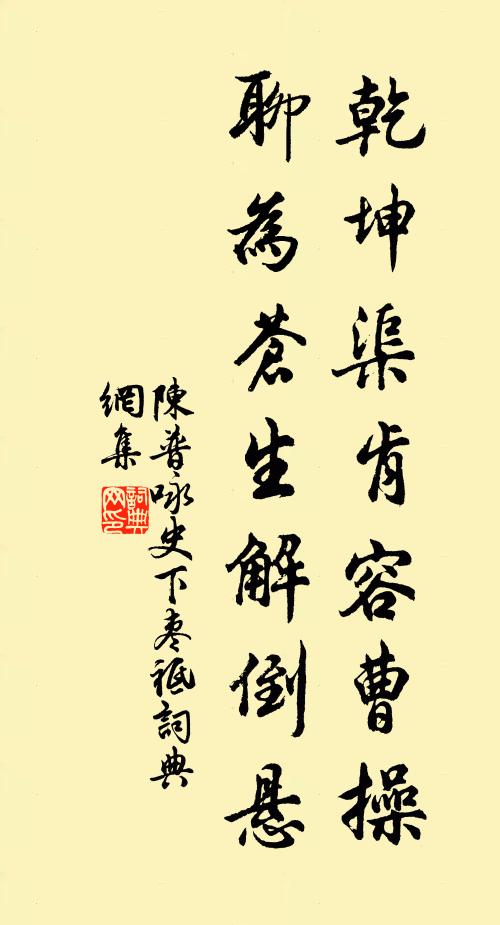 乾坤渠肯容曹操
聊為蒼生解倒懸
陳普詠史下棗祗詞典
網集
詞典
网印